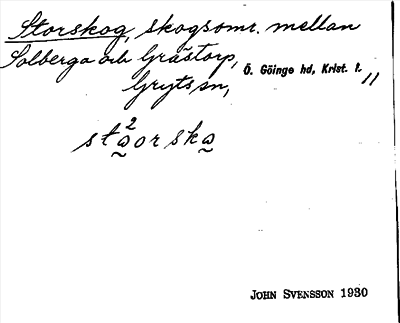 Storskog, skogsomr. mellan
Solberga och Gråstorp,
Gryts sn, Ö. Göinge hd, Krist. l. 11
st²ɷorskɷ
JOHN SVENSSON 1930